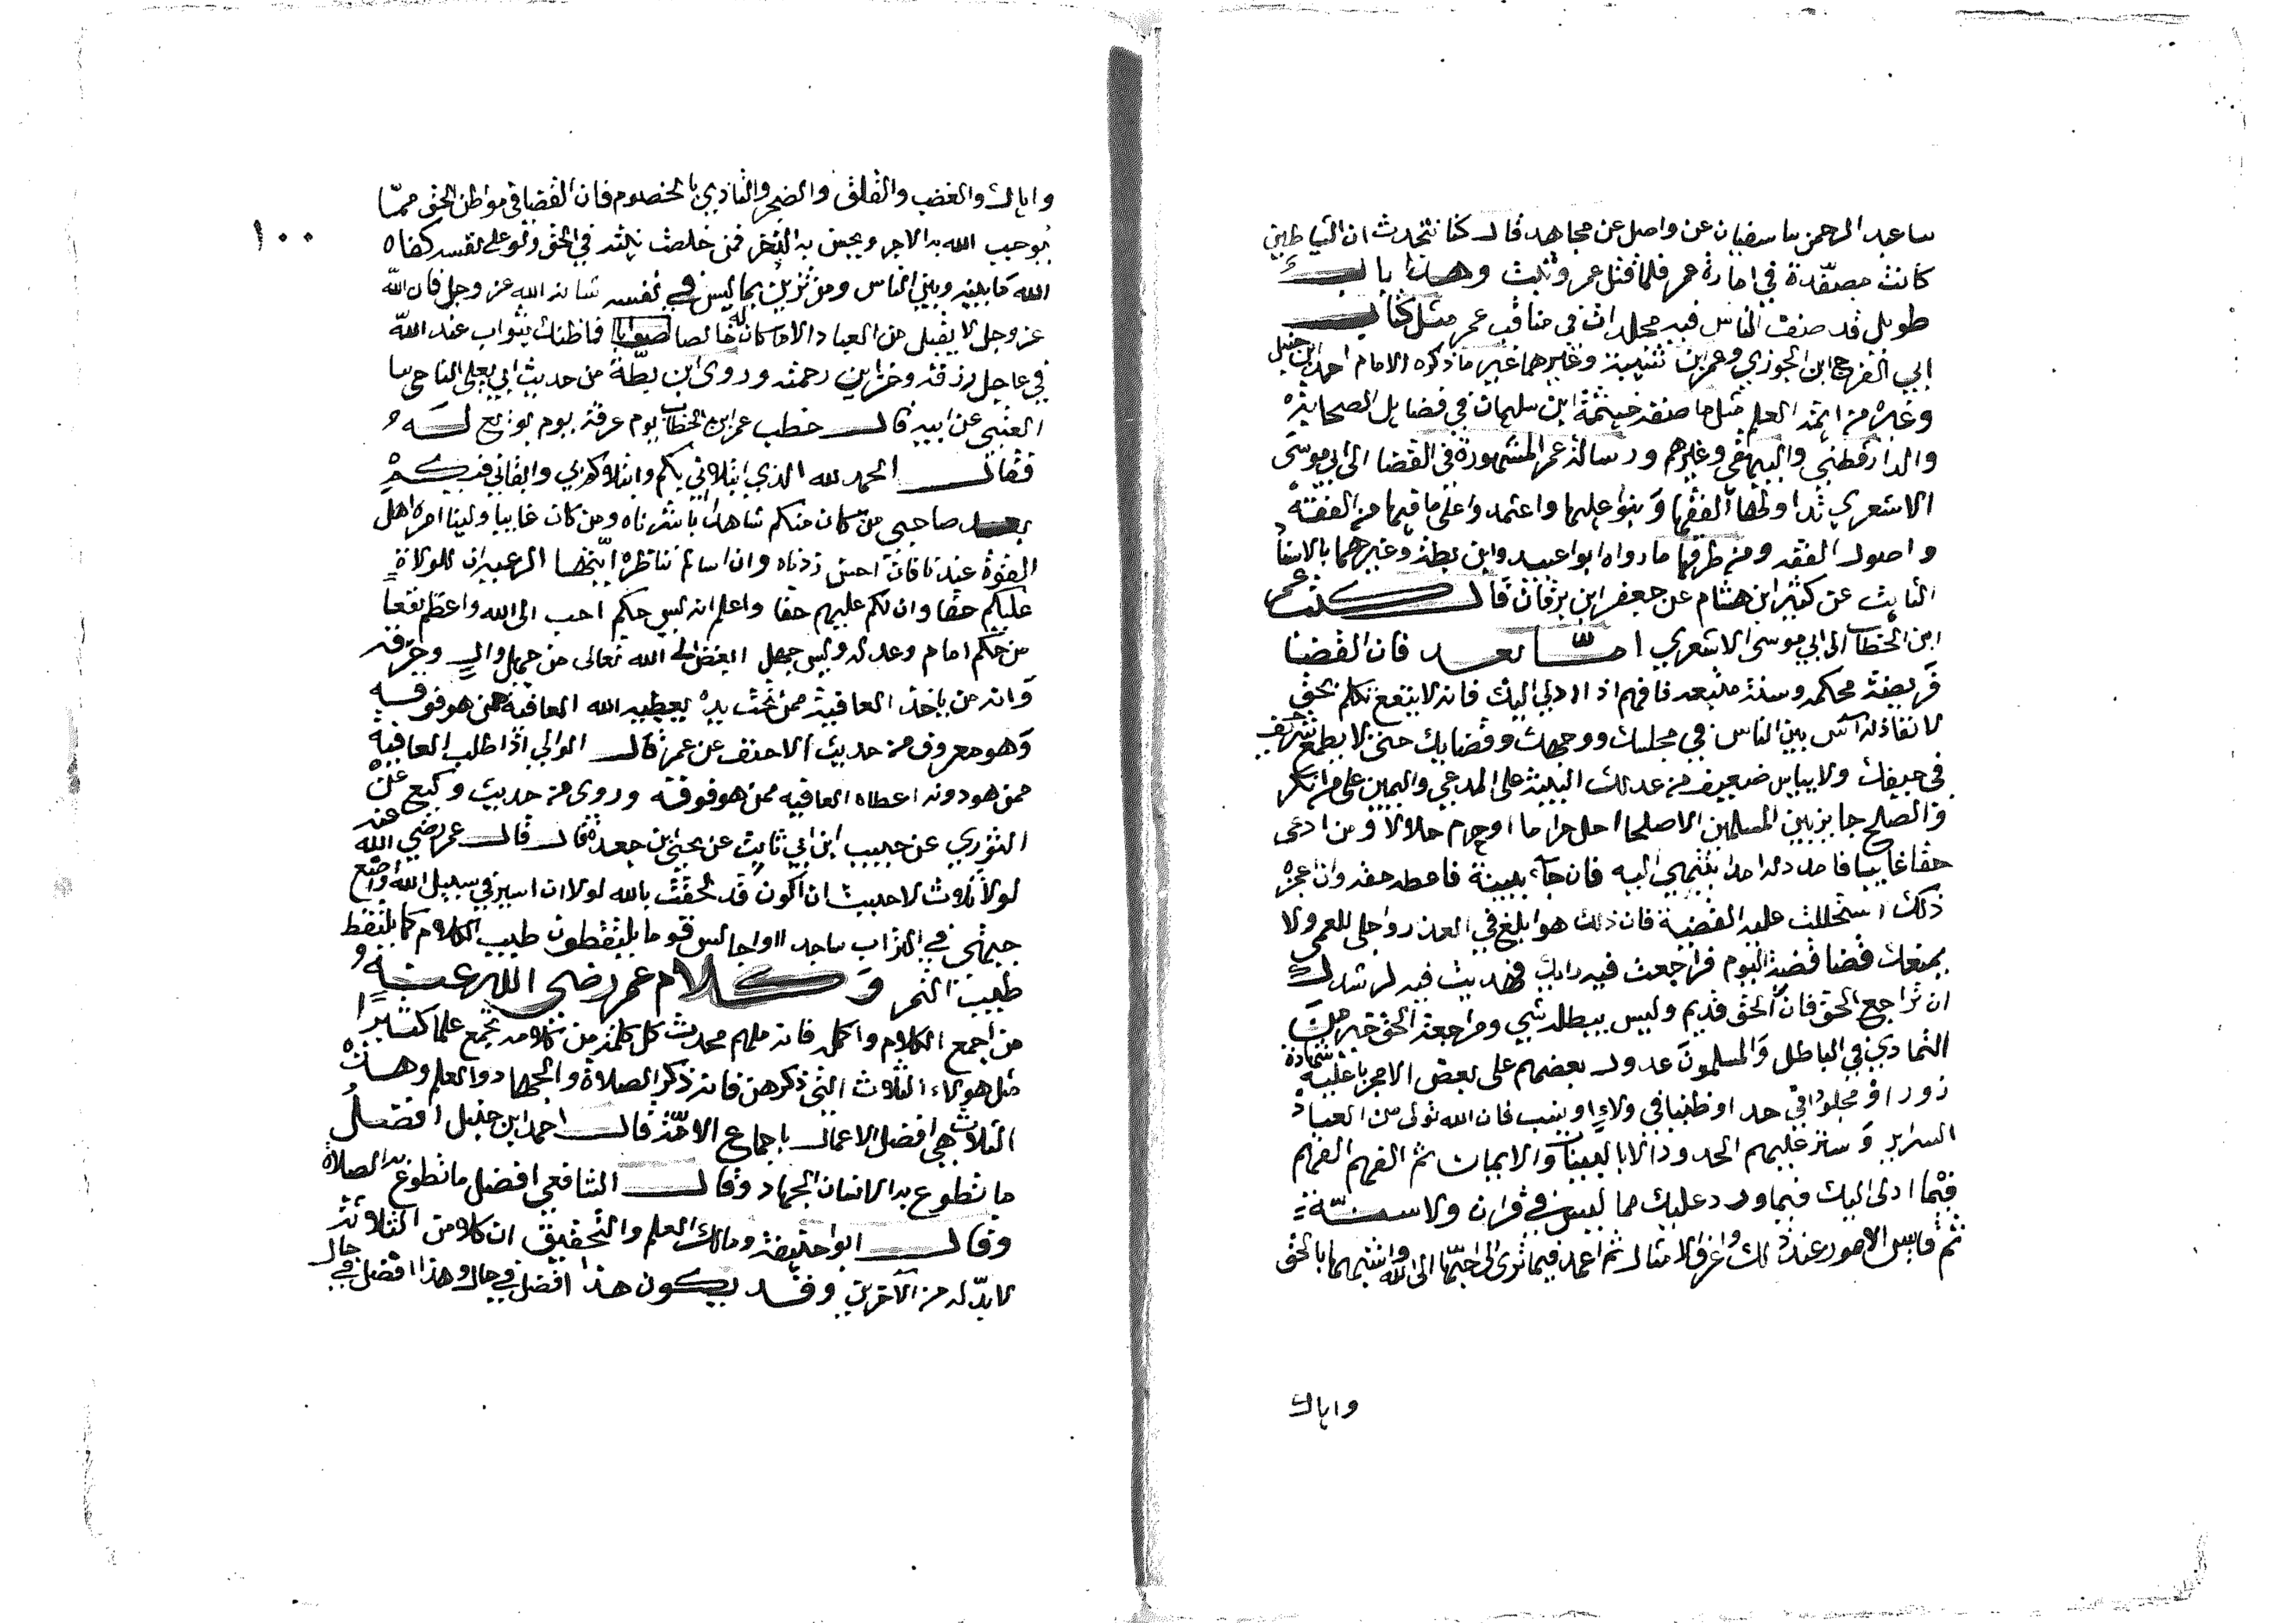 ساعبد الرحمن سا سفيان عن واصل عن مجاهد قال كنا نتحدث ان الشياطين
كانت مصفدة في امارة عمر فلما قتل عمر وثبت وهذا باب
طويل قد صنف الناس فيه مجلدات في مناقب عمر مثل كتاب
ابي الفرج ابن الجوزي وعمر بن شيبة وغيرهما غير ما ذكره الامام احمد ابن حنبل
وغيره من ائمة العلم مثل ما صنفه خيثمة ابن سليمان في فضايل الصحابة
والدارقطني والبيهقي وغيرهم ورسالة عمر المشهورة في القضا الى ابي موسى
الاشعري تداولها الفقها وبنوا عليها واعتمدوا على ما فيها من الفقه
واصول الفقه ومن طرقها ما رواه ابو اعبيد وابن بطة وغيرهما بالاسناد
الثابت عن كثير ابن هشام عن جعفر ابن برقان قال كتب عمر
ابن الخطاب الى ابي موسى الاشعري اما بعد فان القضا
فريضة محكمه وسنة متبعه فافهم اذا ادلي اليك فانه لا ينفع تكلم بحق
لا نفاذ له آس بين الناس في مجلسك ووجهك وقضايك حتى لا يطمع شريف
في حيفك ولا يياس ضعيف من عدلك البينة على المدعي واليمين على من انكر
والصلح جايز بين المسلمين الا صلحا احل حراما او حرم حلالا ومن ادعى
حقا غايبا فامدد له امدا ينتهي اليه فان جآء ببينة فاعطه حقه وان اعجزه
ذلك استحللت عليه القضية فان ذلك هو ابلغ في العذر واجلى للعمى ولا
يمنعك قضا قضيته اليوم فراجعت فيه رايك فهديت فيه لرشدك
ان تراجع الحق فان الحق قديم وليس يبطله شي ومراجعة الحق خير من
التمادي في الباطل والمسلمون عدول بعضهم على بعض الا مجربا عليه شهادة
زور او مجلودا في حد او ظنينا في ولاء او نسب فان الله تولى من العباد
السراير وستر عليهم الحدود الا بالبينات والايمان ثم الفهم الفهم
فيما ادلى اليك فيما ورد عليك مما ليس في قران ولا سنة
ثم قايس الامور عند ذلك واعرف الامثال ثم اعمد فيما ترى الى احبها الى الله واشبهها بالحق
واياك
١٠٠
واياك والغضب والقلق والضجر والتاذي بالخصوم فان القضا في مواطن الحق مما
يوجب الله به الاجر ويحسن به الذخر فمن خلصت نيته في الحق ولو على نفسه كفاه
الله ما بينه وبين الناس ومن تزين بما ليس في نفسه شانه الله عز وجل فان الله
عز وجل لا يقبل من العباد الا ما كان له خالصا صوابا فما ظنك بثواب عند الله
في عاجل رزقه وخزاين رحمته وروى ابن بطة من حديث ابي يعلى الناجي سا
العتبي عن ابيه قال خطب عمر ابن الخطاب يوم عرفة يوم بويع له
فقال الحمد لله الذي ابتلاني بكم وابتلاكم بي وابقاني فيكم
بعد صاحبي من كان منكم شاهدا باشرناه ومن كان غايبا ولينا امره اهل
القوة عندنا فان احسن زدناه وان اسا لم نناظره ايتها الرعية ان للولاة
عليكم حقا وان لكم عليهم حقا واعلم انه ليس حكم احب الى الله واعظم نفعا
من حكم امام وعدله وليس جهل ابغض الى الله تعالى من جهل وال وخرقه
وانه من ياخذ العافية ممن تحت يده يعطيه الله العافية ممن هو فوقه
وهو معروف من حديث الاحنف عن عمر قال الوالي اذا طلب العافية
ممن هو دونه اعطاه العافيه ممن هو فوقه وروى من حديث وكيع عن
الثوري عن حبيب ابن ابي ثابت عن يحيى ابن جعدة قال قال عمر رضي الله عنه
لولا ثلاث لاحببت ان اكون قد لحقت بالله لولا ان اسير في سبيل الله واضع
جبهتي في التراب ساجدا او اجالس قوما يلتقطون طيب الكلام كما يلتقط
طيب التمر وكلام عمر رضي الله عنه
من اجمع الكلام واكمله فانه ملهم محدث كل كلمة من كلامه تجمع علما كثيرا
مثل هولاء الثلاث التي ذكرهن فانه ذكر الصلاة والجهاد والعلم وهذه
الثلاث هي افضل الاعمال باجماع الامة قال احمد ابن حنبل افضل
ما تطوع به الانسان الجهاد وقال الشافعي افضل ما تطوع به الصلاة
وقال ابو احنيفة ومالك العلم والتحقيق ان كلا من الثلاثة
لا بد له من الآخرين وقد يكون هذا افضل في حال وهذا افضل في حال